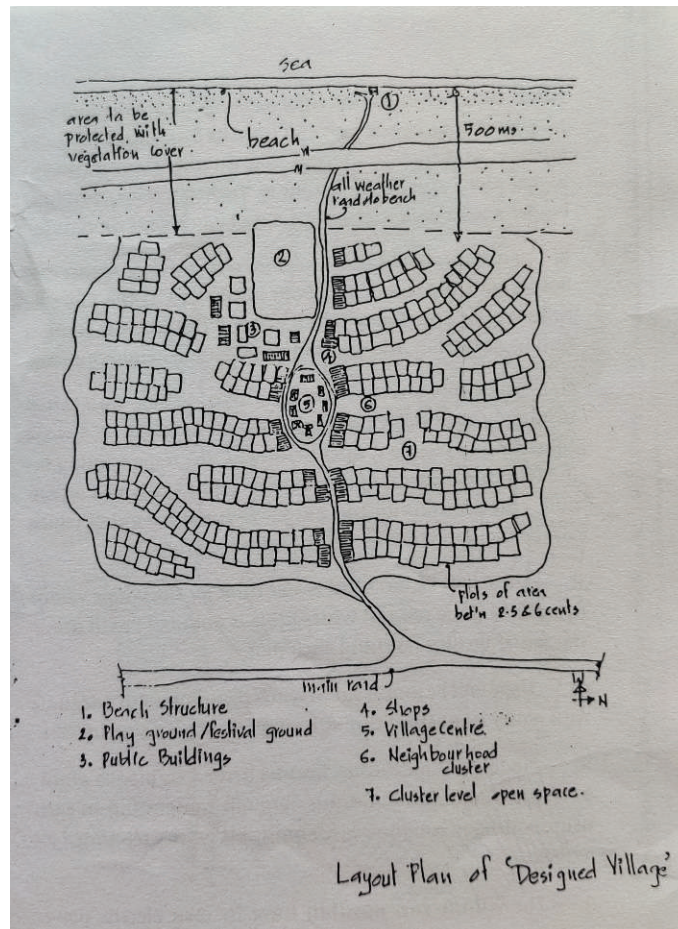 sea
①
area to be
protected with
vegetation cover
beach
500 ms.
all weather
road to beach
②
③
④
⑤
⑥
⑦
plots of area
bet'n 2.5 & 6 cents
main road
N
1. Beach Structure
2. Play ground/festival ground
3. Public Buildings
4. Shops
5. Village Centre
6. Neighbourhood
cluster
7. Cluster level open space.
Layout Plan of 'Designed Village'